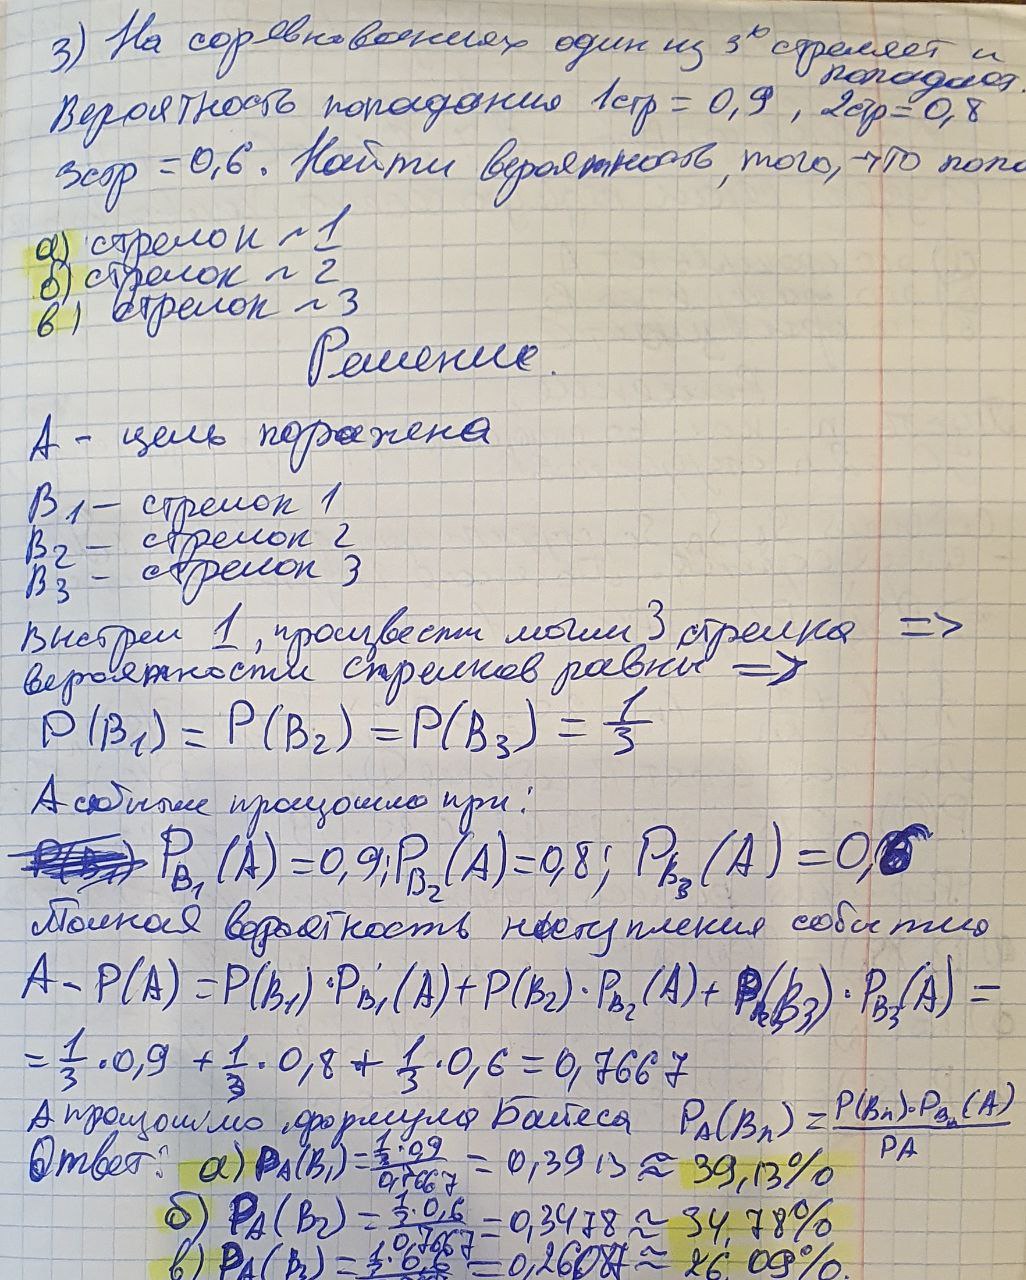 3) На соревнованиях один из 3х стреляет и попадает.
Вероятность попадания 1стр = 0,9 , 2стр = 0,8
3стр = 0,6. Найти вероятность, того, что попа
а) стрелок ~ 1
б) стрелок ~ 2
в) стрелок ~ 3
Решение.
A - цель поражена
B1 - стрелок 1
B2 - стрелок 2
B3 - стрелок 3
Выстрел 1, произвести могли 3 стрелка =>
вероятности стрелков равны =>
P(B1) = P(B2) = P(B3) = 1/3
A событие произошло при:
PB1(A) = 0,9; PB2(A) = 0,8; PB3(A) = 0,6
Полная вероятность наступления события
A - P(A) = P(B1)·PB1(A) + P(B2)·PB2(A) + P(B3)·PB3(A) =
= 1/3 · 0,9 + 1/3 · 0,8 + 1/3 · 0,6 = 0,7667
A произошло, формула Байеса PA(Bn) = P(Bn)·PBn(A) / PA
Ответ: а) PA(B1) = 1/3·0,9 / 0,7667 = 0,3913 ≈ 39,13%
б) PA(B2) = 1/3·0,6 / 0,7667 = 0,3478 ≈ 34,78%
в) PA(B3) = = 0,26087 ≈ 26,09%.